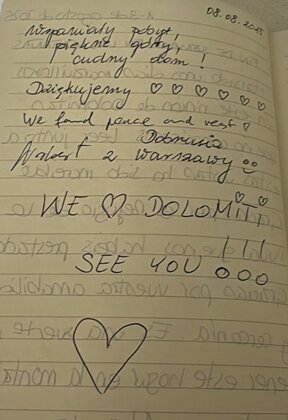 08.08.
Wspaniały pobyt,
piękne góry,
cudny dom!
Dziękujemy ♡ ♡ ♡ ♡ ♡ ♡
We found peace and rest
Dobrusia
Norbert z Warszawy
WE ♡ DOLOMITI
SEE YOU